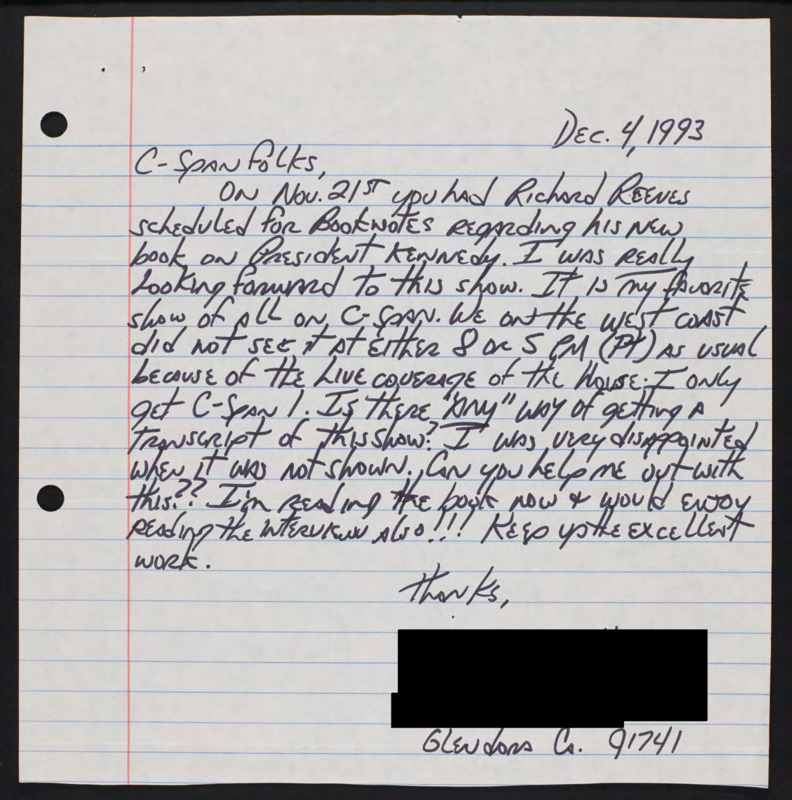 Dec. 4, 1993
C-Span Folks,
On Nov. 21st you had Richard Reeves
scheduled for Booknotes regarding his new
book on President Kennedy. I was really
looking forward to this show. It is my favorite
show of all on C-Span. We on the west coast
did not see it at either 8 or 5 PM (PT) as usual
because of the live coverage of the House. I only
get C-Span 1. Is there "any" way of getting a
transcript of this show? I was very disappointed
when it was not shown. Can you help me out with
this?? I'm reading the book now & would enjoy
reading the interview also!!! Keep up the excellent
work.
Thanks,
Glendora Ca. 91741